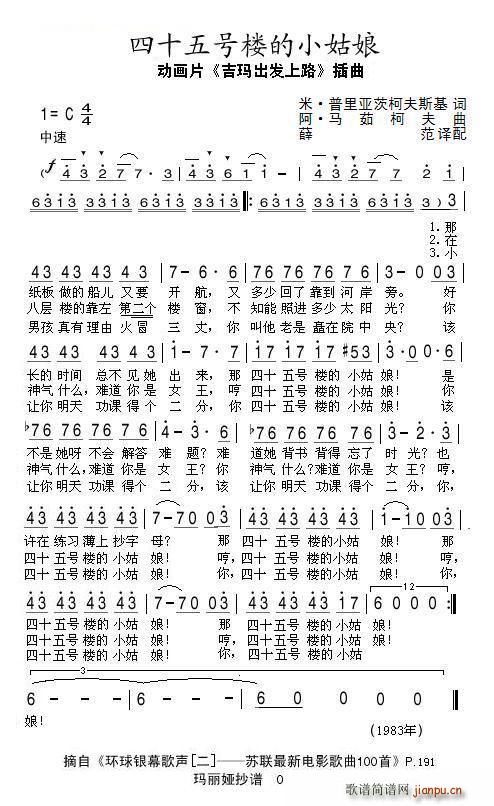 四十五号楼的小姑娘
动画片《吉玛出发上路》插曲
1=C 4/4
中速
米·普里亚茨柯夫斯基 词
阿·马茹柯夫 曲
薛范 译配
1. 那
2. 在
3. 小
43 43 43 43 | 7- 6· 6 | 76 76 76 76 | 3- 0 03 |
纸板 做的 船儿 又要 开 航，又 多少 回了 靠到 河 岸 旁。 好
八层 楼的 靠左 第二个 楼 窗，不 知能 照进 多少 太 阳 光？ 你
男孩 真有 理由 火冒 三 丈，你 叫他 老是 矗在 院 中 央？ 该
长的 时间 总不 见她 出 来，那 四十 五号 楼的 小姑 娘！ 是
神气 什么，难道 你是 女 王，那 四十 五号 楼的 小姑 娘！ 你
让你 明天 功课 得个 二 分，你 四十 五号 楼的 小姑 娘！ 该
不是 她呀 不会 解答 难 题？难 道她 背书 背得 忘了 时 光？也
神气 什么，难道 你是 女 王？你 神气 什么？难道 你是 女 王？哼，
让你 明天 功课 得个 二 分，该 让你 明天 功课 得个 二 分，你
许在 练习 薄上 抄字 母？ 那 四十 五号 楼的 小姑 娘！ 那
四十 五号 楼的 小姑 娘！ 哼， 四十 五号 楼的 小姑 娘！ 哼，
四十 五号 楼的 小姑 娘！ 你， 四十 五号 楼的 小姑 娘！ 你，
43 43 43 43 | 7-70 03 | 43 43 43 17 | 6 0 0 0 :|
四十 五号 楼的 小姑 娘！ 那 四十 五号 楼的 小姑 娘！
四十 五号 楼的 小姑 娘！ 哼， 四十 五号 楼的 小姑 娘！
四十 五号 楼的 小姑 娘！ 你， 四十 五号 楼的 小姑
3
6 - - - | 6 - - - | 6 - - - | 6 0 0 0 ‖
娘！
(1983年)
摘自《环球银幕歌声[二]——苏联最新电影歌曲100首》P.191
玛丽娅抄谱 0
歌谱简谱网
jianpu.cn